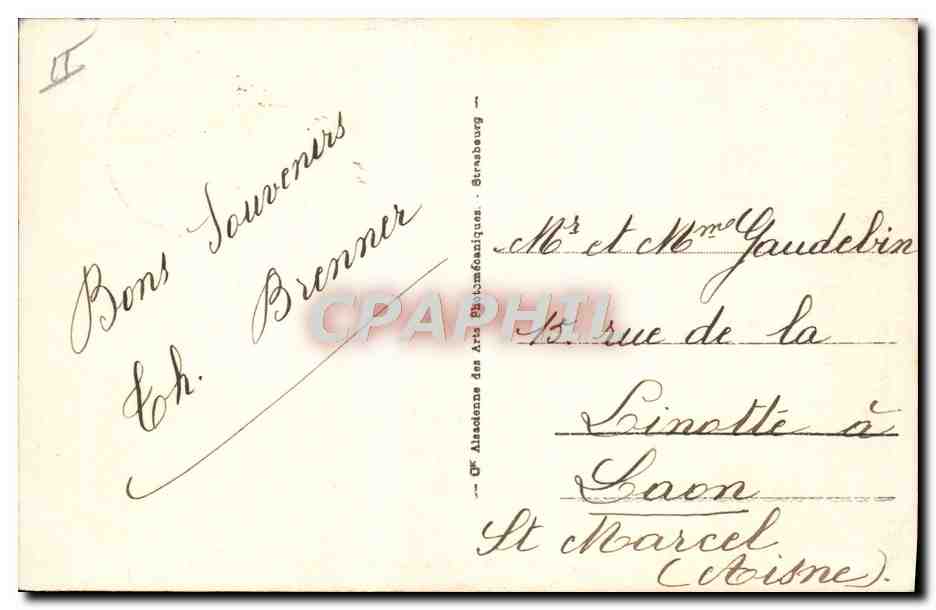 II
Bons Souvenirs
Th. Brenner
— Cie Alsacienne des Arts Photomécaniques. - Strasbourg —
CPAPHIL
Mr et Mme Gaudebin
15. rue de la
Linotté à
Laon
St Marcel
(Aisne).